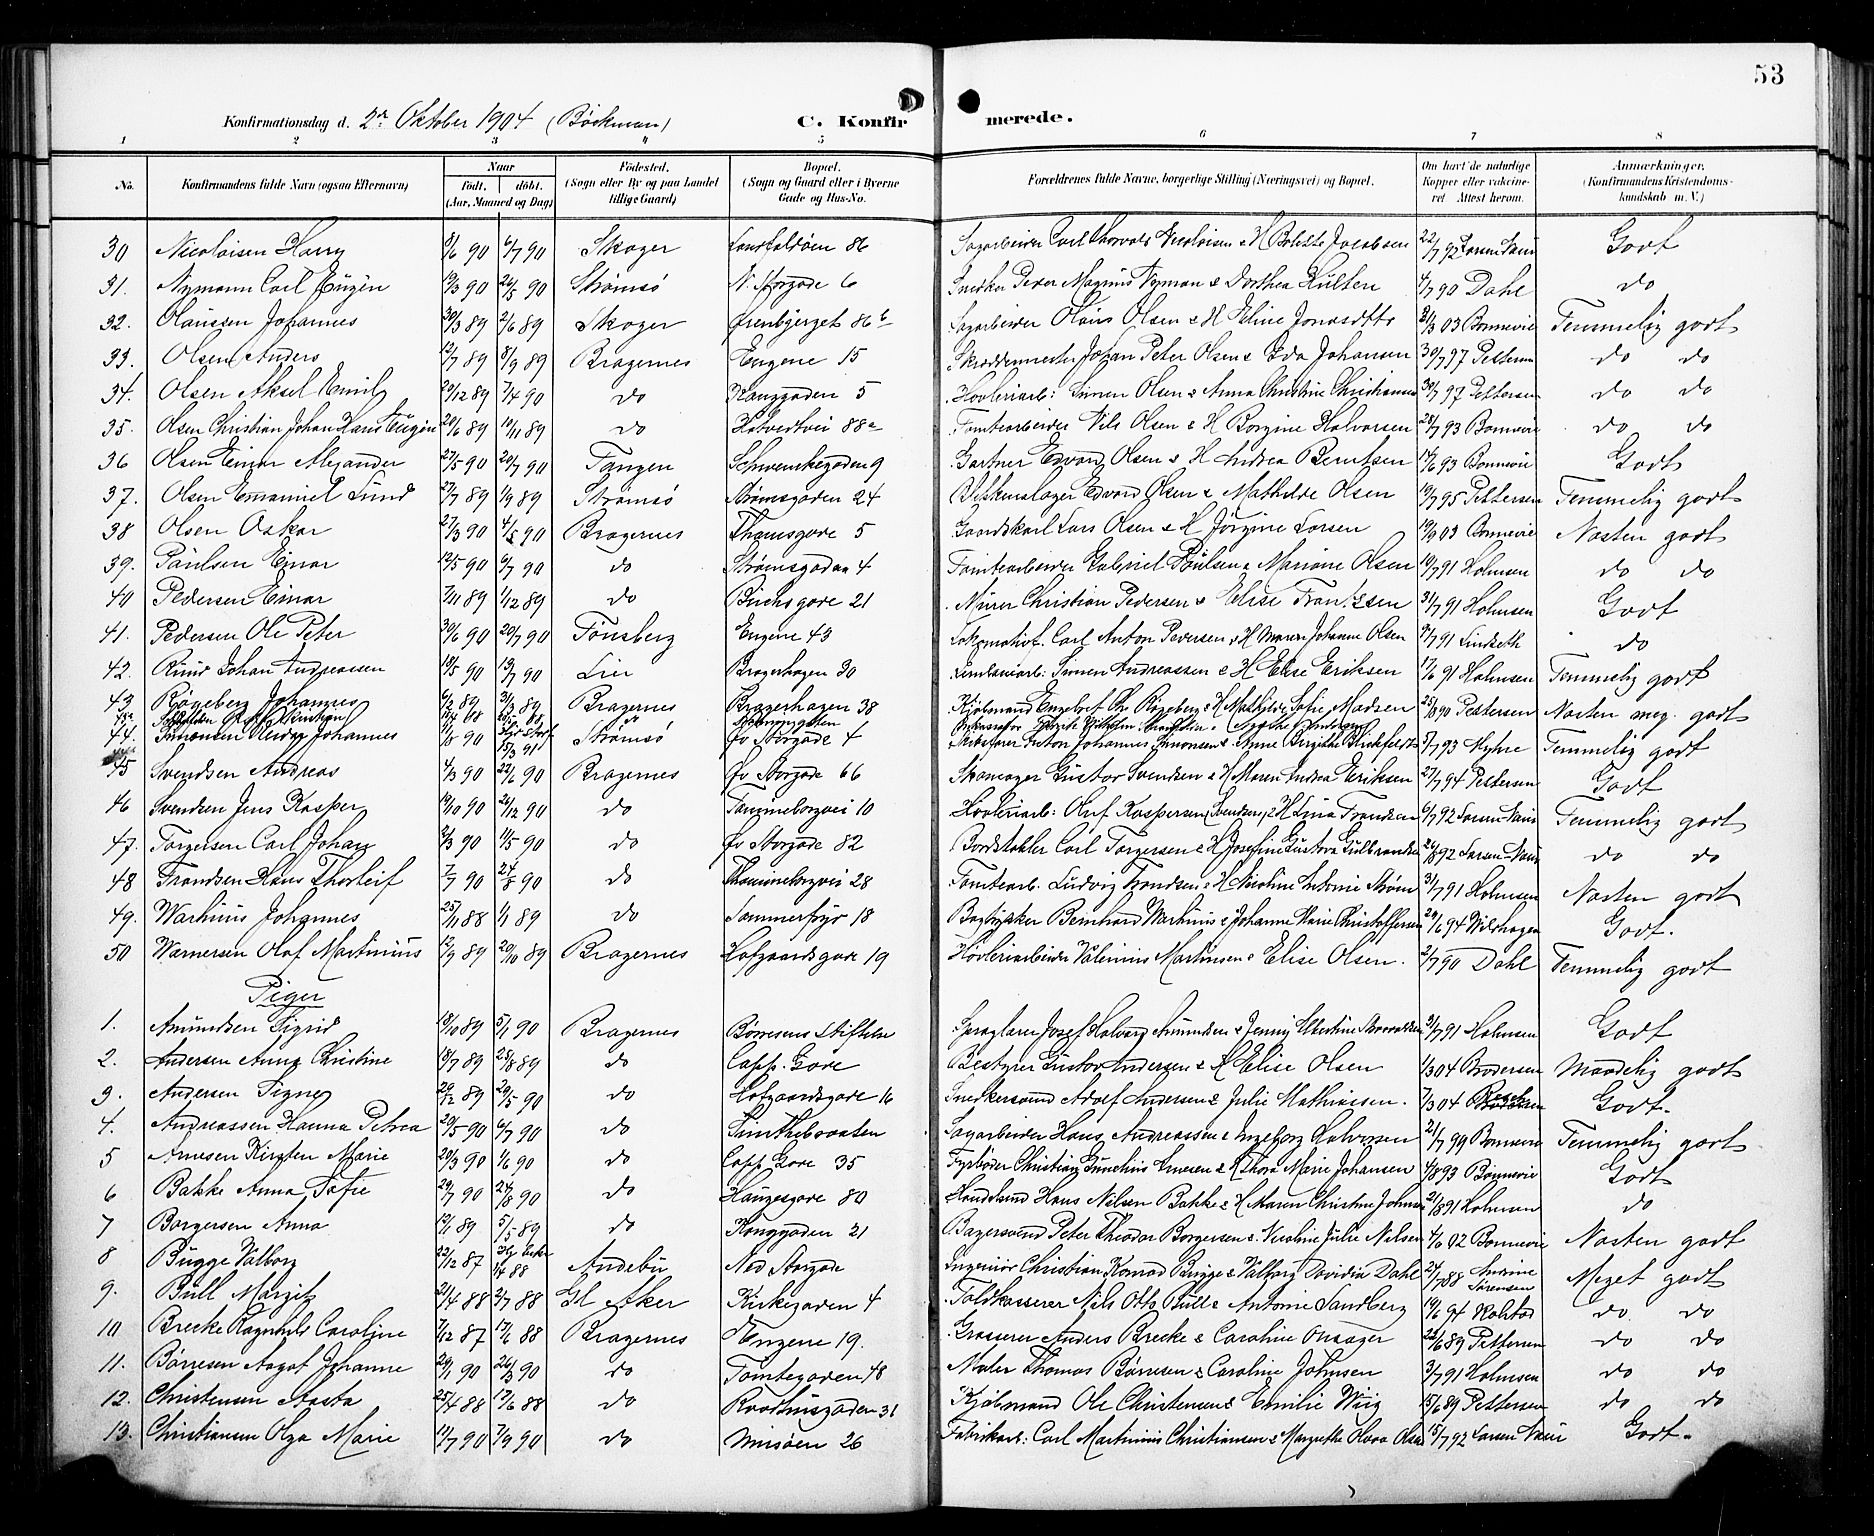 53
Konfirmationsdag d. 2den Oktober 1904 (Böckman) C. Konfirmerede.
1 2 3 4 5 6 7 8
No. Konfirmandens fulde Navn (ogsaa Efternavn) Naar födt. döbt. (Aar, Maaned og Dag) Födested. (Sogn eller By og paa Landet tillige Gaard) Bopæl. (Sogn og Gaard eller i Byerne Gade og Hus-No. Forældrenes fulde Navne, borgerlige Stilling (Næringsvei) og Bopæl. Om havt de naturlige Kopper eller vakcineret Attest herom. Anmærkninger. (Konfirmandens Kristendomskundskab m. V.)
30 Nicolaisen Harry 8/6 90 6/7 90 Skoger 86 Sagarbeider Carl Thorvald Nicolaisen & H Bolette Jacobsen 22/7 92 Godt
31. Nymann Carl Eugen 19/3 90 26/5 90 Strømsø N. Storgade 6 Snedker Peder Magnus Nyman & Dorthea Hulten 4/7 90 Dahl do
32. Olaussen Johannes 30/3 89 2/6 89 Skoger Ørenbjerget 86b Sagarbeider Olaus Olsen & H Eline 21/3 03 Bonnevie Temmelig godt
33. Olsen Anders 12/7 89 8/9 89 Bragernes Engene 15 Skræddermester Johan Peter Olsen & Ida Johansen 30/7 97 Pettersen do do
34. Olsen Aksel Emil 20/12 89 7/4 90 do Konggaden 5 Høvleriarb: Simen Olsen & Anna Christine Christiansen 30/7 97 Pettersen do do
35. Olsen Christian Johan Hans Eugen 20/6 89 10/11 89 do 88a Tomtearbeider Nils Olsen & H Borgine Halvorsen 28/7 93 Bonnevie do do
36 Olsen Einar Alexander 27/5 90 20/7 90 Tangen Schwenkegaden 9 Gartner Edvard Olsen & H Andrea Berntsen 14/6 93 Bonnevie Godt
37. Olsen Emanuel Lund 27/7 89 1/9 89 Strømsø Strømsgaden 24 Edvard Olsen & Mathilde Olsen 19/7 95 Pettersen Temmelig godt
38 Olsen Oskar 27/3 90 4/5 90 Bragernes Thamsgade 5 Gaardskarl Lars Olsen & H Jørgine Larsen 19/9 03 Bonnevie Næsten godt
39. Paulsen Einar 12/5 90 6/7 90 do Strømsgaden 4 Tomtearbeider Gabriel Paulsen & Mariane Olsen 10/7 91 Holmsen do do
40 Pedersen Einar 7/11 89 1/12 89 do Buchsgade 21 Murer Christian Pedersen & Elise Frantzsen 31/7 91 Holmsen Godt
41. Pedersen Ole Peter 30/6 90 20/7 90 Tønsberg Engene 43 Lokomotivf. Carl Anton Pedersen & H Maren Johanne Olsen 9/7 91 Lindseth do
42. Ruud Johan Andreassen 10/5 90 13/7 90 Lier Bragerhagen 30 Simen Andreassen & H Elise Eriksen 17/6 91 Holmsen Temmelig godt
43 Røgeberg Johannes 6/2 89 31/3 89 Bragernes Bragerhagen 38 Kjøbmand Engebret Chr Røgeberg & H Mathilde Sofie Madsen 25/8 90 Pettersen Næsten meg. godt
44. Simonsen Reidar Johannes 11/8 90 15/3 91 Strømsø Øv Storgade 4 Anton Johannes Simonsen & Anne Birgithe 5/7 93 Myhre Temmelig godt
45 Svendsen Andreas 4/3 90 22/6 90 Bragernes Øv Storgade 66 Skomager Gustav Svendsen & H Maren Andrea Eriksen 27/7 94 Pettersen Godt
46 Svendsen Jens Kasper 19/10 90 21/12 90 do 10 Høvleriarb: Oluf Kaspersen (Svendsen) & H Lina Frandsen 6/7 92 Temmelig godt
47. Torgersen Carl Johan 2/3 90 11/5 90 do Øv Storgade 82 Bordstabler Carl Torgersen & H Josefine Gustava Gulbrandsen 20/8 92 do do
48 Trondsen Hans Thorleif 2/7 90 24/8 90 do 28 Tomtearb. Ludvig Trondsen & H Nicoline Antonie Strøm 31/7 91 Holmsen Næsten godt
49. Warhuus Johannes 25/11 88 1/1 89 do Sommerfryd 18 Bogtrykker Bernhard Warhuus & Johanne Marie Christoffersen 29/6 94 Wilshagen Godt.
50 Warnersen Olaf Martinius 12/9 89 20/10 89 Bragernes Hofgaardsgade 19 Høvleriarbeider Martinsen & Elise Olsen. 2/7 90 Dahl Temmelig godt
Piger
1. Amundsen Sigrid 18/10 89 5/1 90 Bragernes Børresens Stiftelse Josef Halvard Amundsen & Jenny 31/7 91 Holmsen Godt
2. Andersen Anna Christine 18/7 89 25/8 89 do Capp. Gade Bestyrer Gustav Andersen & H Elise Olsen 1/3 04 Brodersen Maadelig godt
3. Andersen Signe 29/12 89 29/5 90 do Hofgaardsgade 16 Snedkersvend Adolf Andersen & Julie Mathiassen. 7/3 04 Godt.
4. Andreassen Hanna Petrea 20/5 90 6/7 90 do Sagarbeider Hans Andreassen & Ingeborg Halvorsen 21/7 99 Bonnevie Temmelig godt
5 Arnesen Kirsten Marie 20/3 90 1/6 90 do Capp Gade 35 Fyrbøder Christian Arnesen & H Thora Marie Johansen 4/8 93 Bonnevie Godt
6 Bakke Anna Sofie 29/7 90 24/8 90 do Haugesgade 80 Hans Nilsen Bakke & H Maren Christine 21/8 91 Holmsen do
7 Borgersen Anna 19/1 89 5/5 89 do Konggaden 21 Bagersvend Peter Theodor Borgersen & Nicoline Julie Nilsen 4/6 02 Bonnevie Næsten godt
8 Bugge Valborg 22/12 87 1/4 88 Andebu Ned Storgade Ingeniør Christian Konrad Bugge & Valborg Davidia Dahl 24/7 88 Andrine Sørensen Meget godt
9. Bull Margit 21/4 88 2/7 88 Gl Aker Kirkegaden 4 Toldkasserer Nils Otto Bull & Antonie Sandberg 14/6 94 do do
10 Brecke Ragnhild Caroline 7/12 87 17/6 88 Bragernes Engene 19. Grosserer Anders Brecke & Caroline Onsager 22/6 89 Pettersen do do
11. Børresen Aagot Johanne 29/1 90 26/3 90 do Tomtegaden 48 Maler Thomas Børresen & Caroline Johnsen 3/7 91 Holmsen do do
12. Christensen Aasta 25/4 88 12/6 88 do Raadhusgaden 31 Kjøbmand Ole Christensen & Emilie Wiig 15/6 89 Pettersen do do
13. Christiansen Olga Marie 11/7 90 7/9 90 do 26 Fabrikarb: Carl Martinius Christiansen & Margrethe Olava Olsen 15/7 92 Godt.